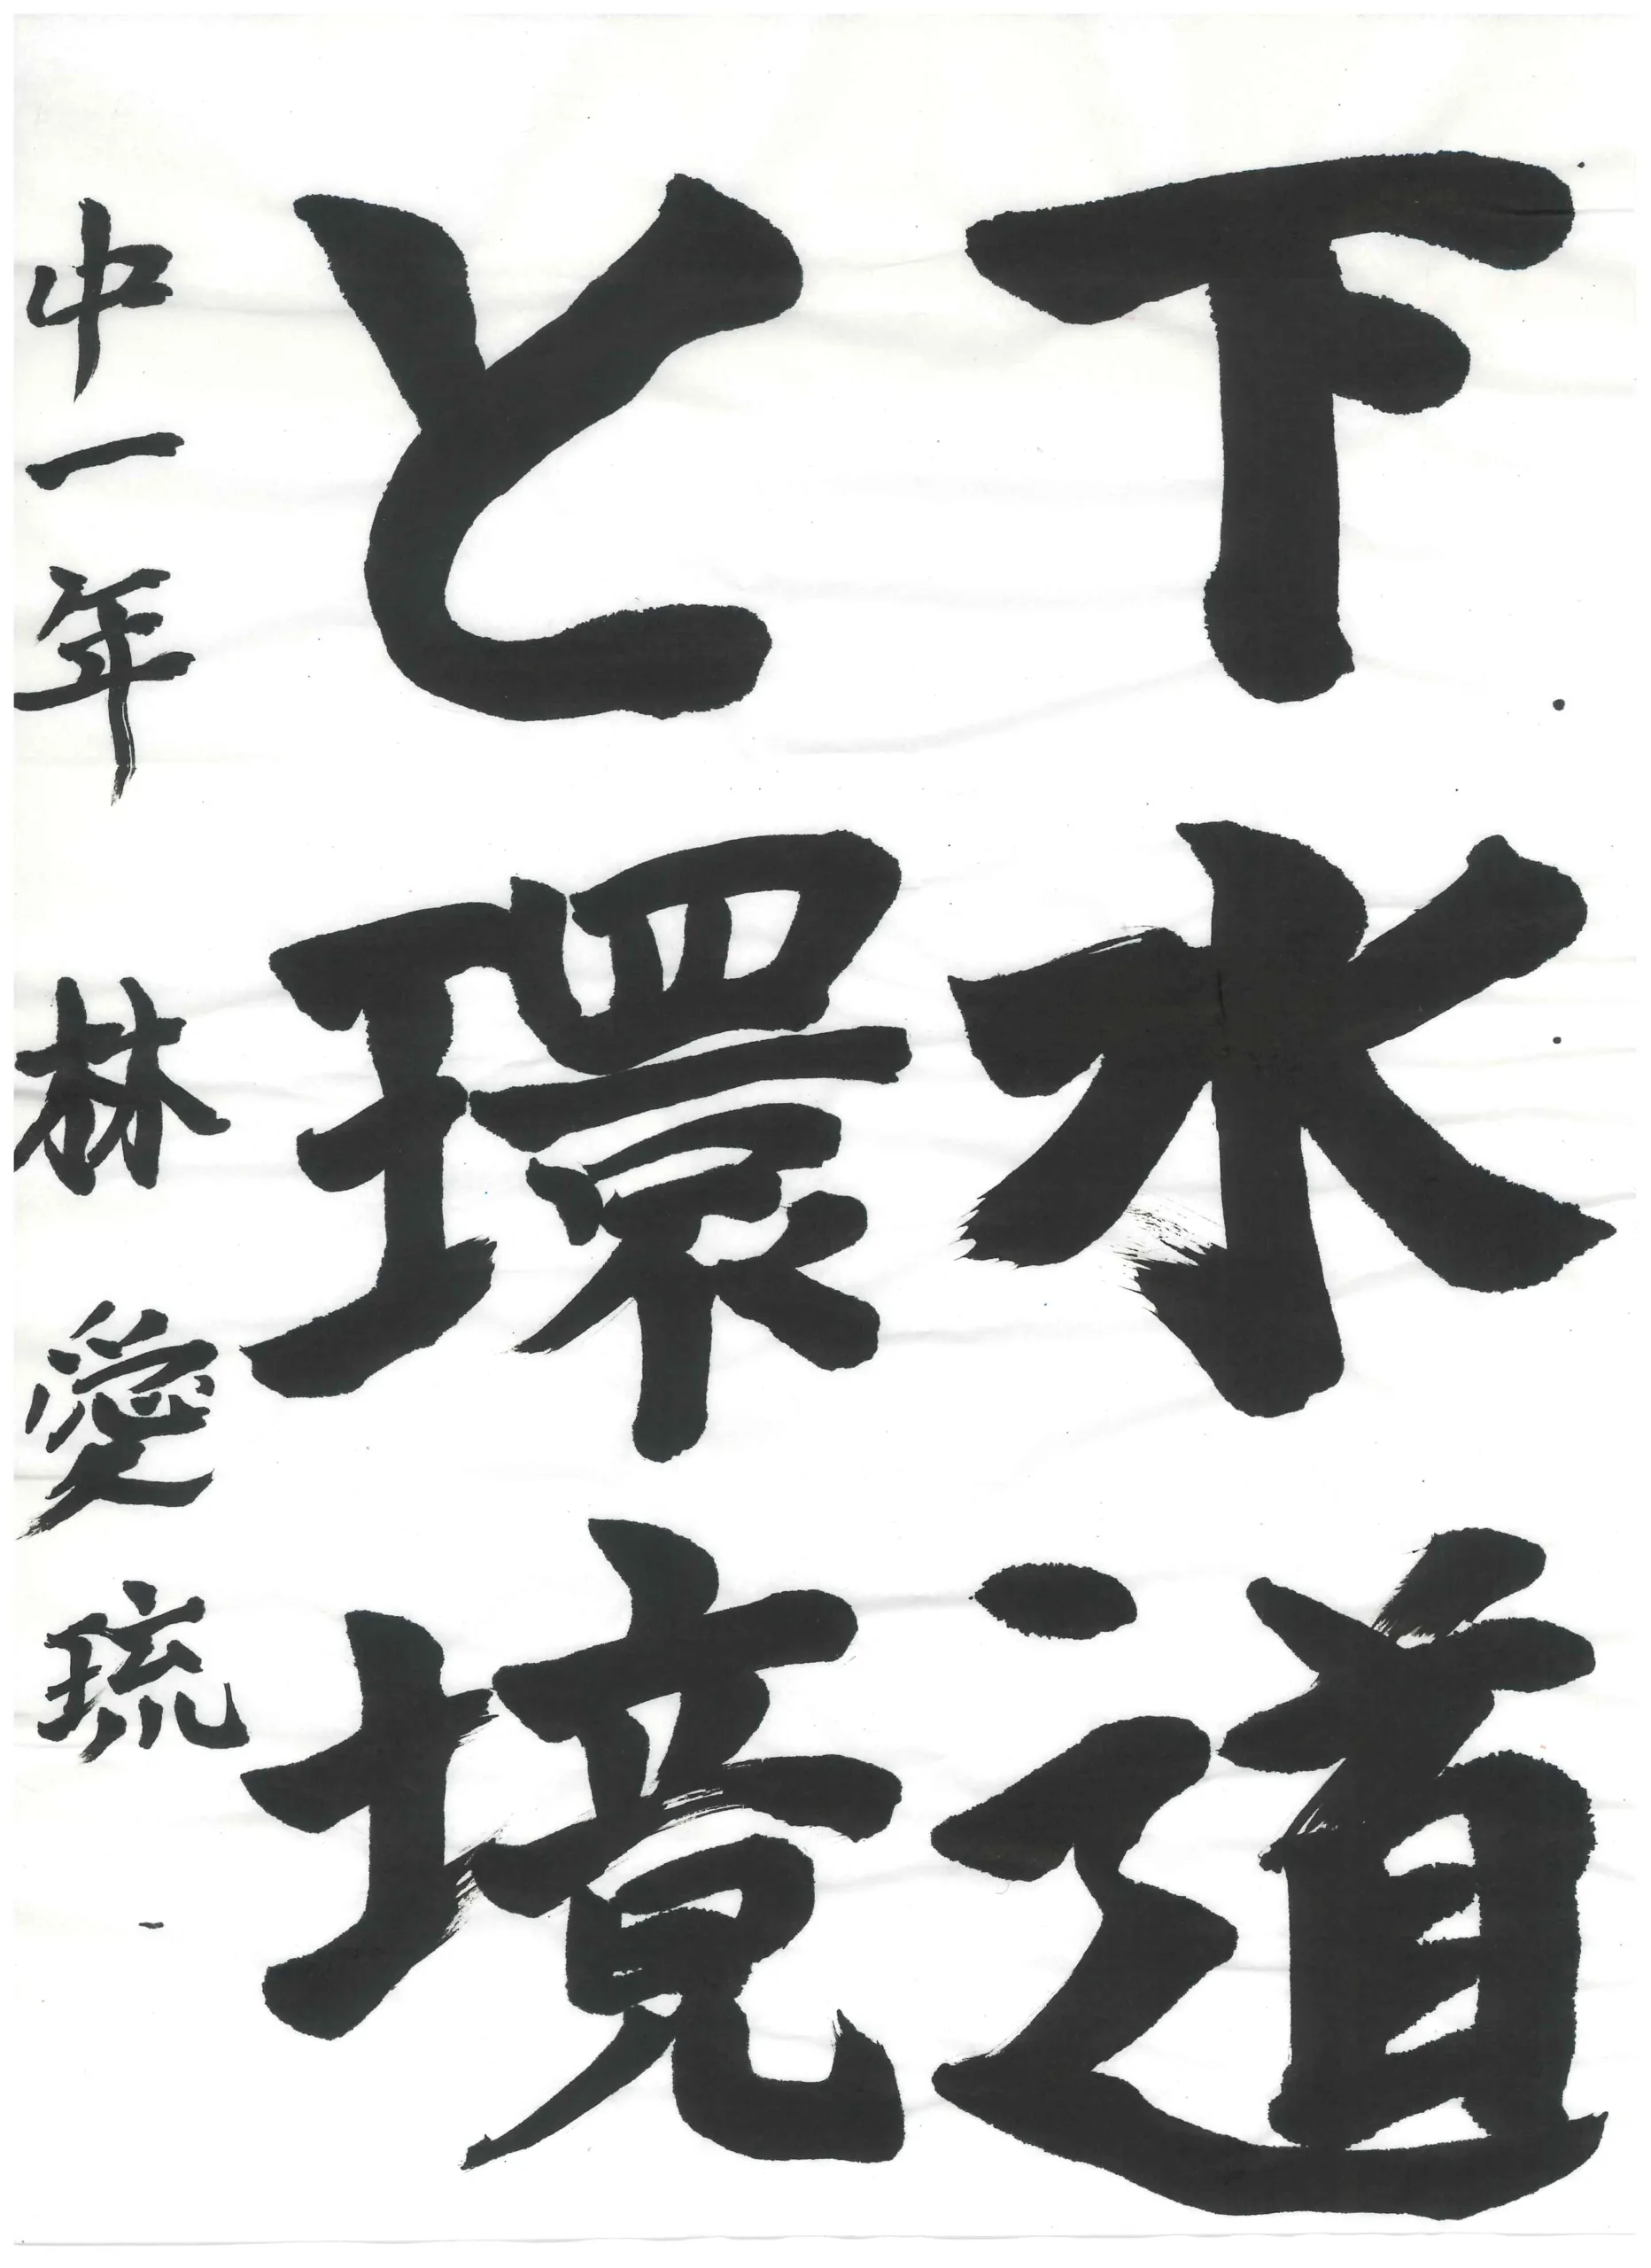 下水道
と環境
中一年 林愛琉